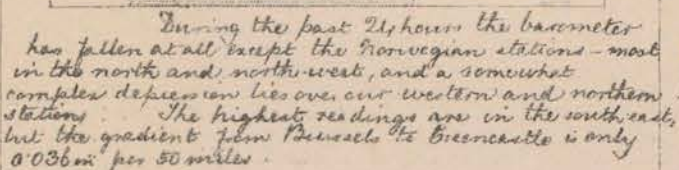 During the past 24 hours the barometer
has fallen at all except the Norwegian stations - most
in the north and north-west, and a somewhat
complex depression lies over our western and northern
stations. The highest readings are in the south east,
but the gradient from Brussels to Greencastle is only
0.036 in per 50 miles.